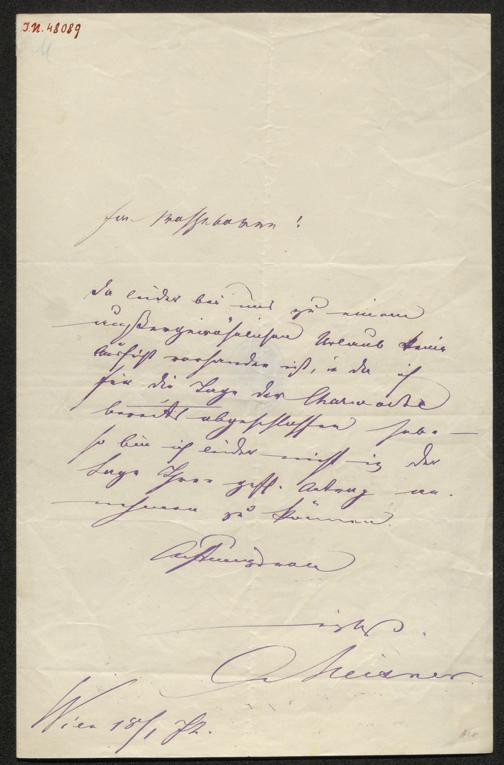 I.N. 48089
Euer Wohlgeboren!
Da leider bei uns zu einem
außergewöhnlichen Urlaub keine
Aussicht vorhanden ist, u da ich
für die Tage der Charwoche
bereits abgeschlossen habe —
so bin ich leider nicht in der
Lage Ihren geff. Antrag an-
nehmen zu können.
Achtungsvoll
Meixner
Wien 18/1